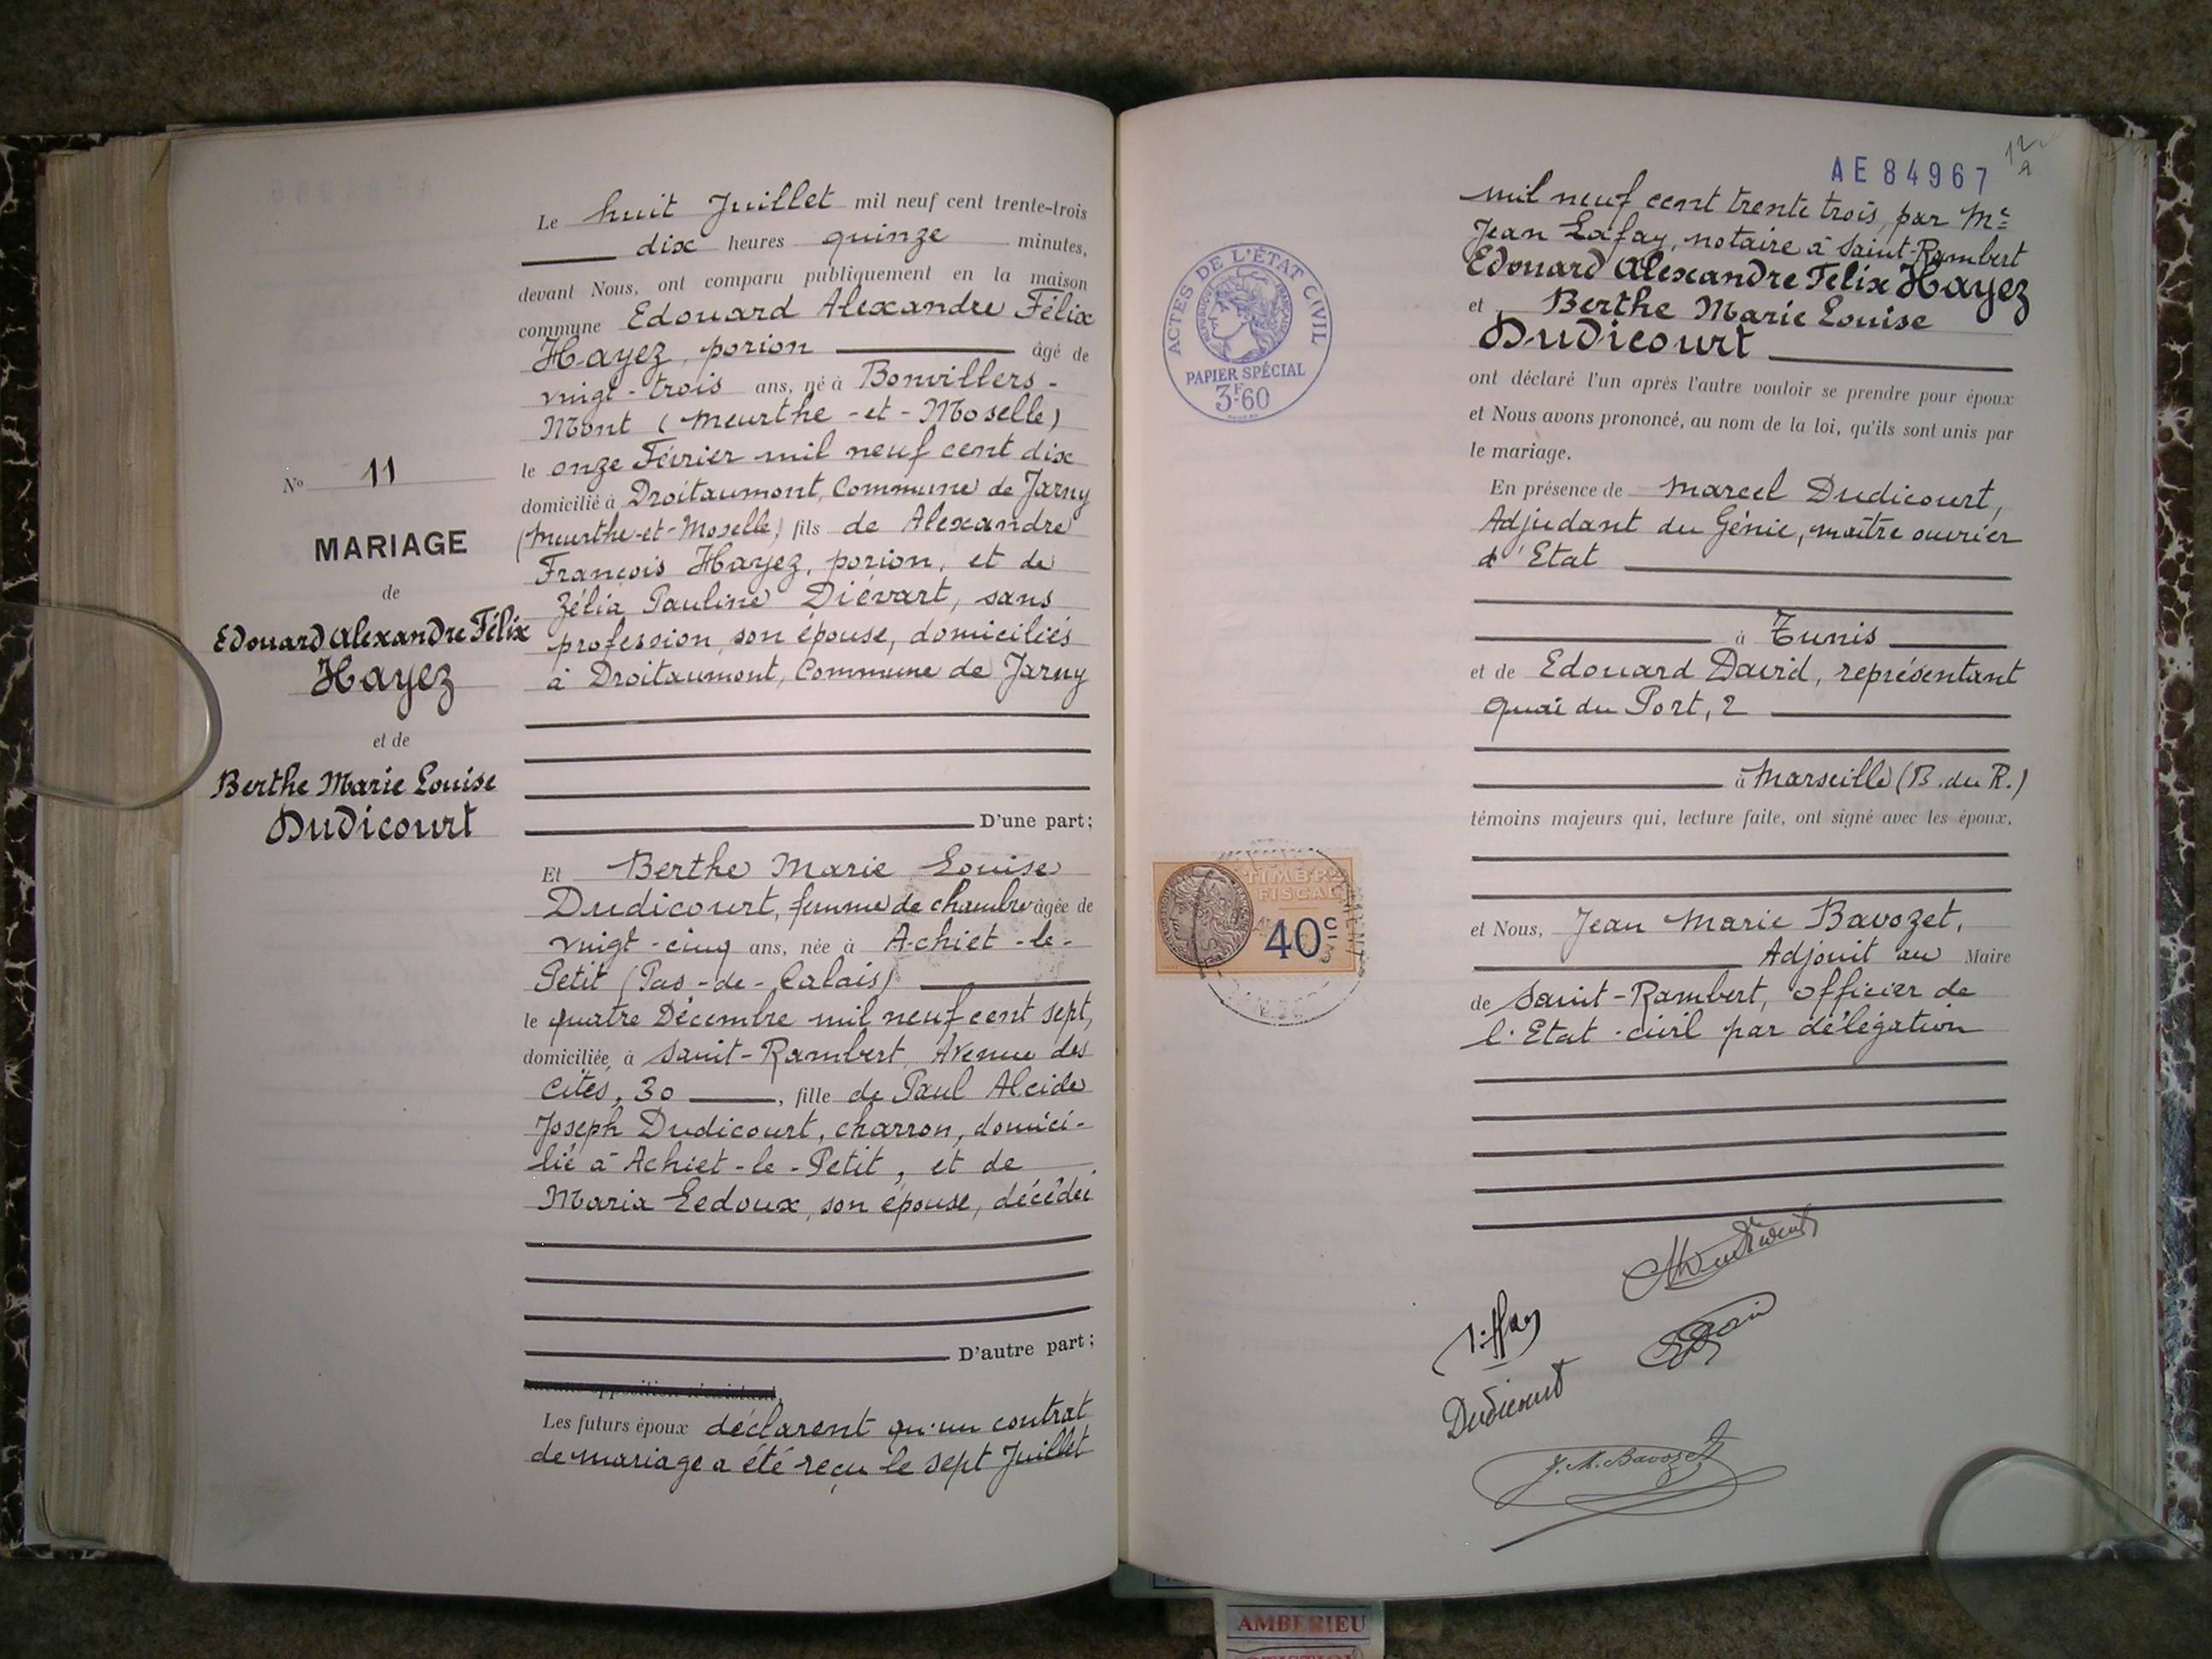 Le huit Juillet mil neuf cent trente-trois
dix heures quinze minutes,
devant Nous, ont comparu publiquement en la maison
commune Edouard Alexandre Félix
Hayez, porion âgé de
vingt-trois ans, né à Bonvillers-
Mont (Meurthe-et-Moselle)
le onze Février mil neuf cent dix
domicilié à Droitaumont, Commune de Jarny
(Meurthe-et-Moselle) fils de Alexandre
François Hayez, porion, et de
Zélia Pauline Diévart, sans
profession, son épouse, domiciliés
à Droitaumont, Commune de Jarny
D'une part;
Nº 11
MARIAGE
de
Edouard Alexandre Félix
Hayez
et de
Berthe Marie Louise
Dudicourt
Et Berthe Marie Louise
Dudicourt, femme de chambre âgée de
vingt-cinq ans, née à Achiet-le-
Petit (Pas-de-Calais)
le quatre Décembre mil neuf cent sept,
domiciliée à Saint-Rambert, Avenue des
Cités, 30, fille de Paul Alcide
Joseph Dudicourt, charron, domici-
lié à Achiet-le-Petit, et de
Maria Ledoux, son épouse, décédée
D'autre part;
Les futurs époux déclarent qu'un contrat
de mariage a été reçu le sept Juillet
AE 84967
mil neuf cent trente trois, par Me
Jean Lafay, notaire à Saint-Rambert
Edouard Alexandre Félix Hayez
et Berthe Marie Louise
Dudicourt
ont déclaré l'un après l'autre vouloir se prendre pour époux
et Nous avons prononcé, au nom de la loi, qu'ils sont unis par
le mariage.
En présence de Marcel Dudicourt,
Adjudant du Génie, maître ouvrier
d'Etat
à Tunis
et de Edouard David, représentant
Quai du Port, 2
à Marseille (B. du R.)
témoins majeurs qui, lecture faite, ont signé avec les époux,
et Nous, Jean Marie Bavozet,
Adjoint au Maire
de Saint-Rambert, officier de
l'Etat-civil par délégation
Dudicourt
J. M. Bavozet
ACTES DE L'ÉTAT CIVIL
RÉPUBLIQUE FRANÇAISE
PAPIER SPÉCIAL
3F.60
TIMBRE
FISCAL
40c
AMBERIEU